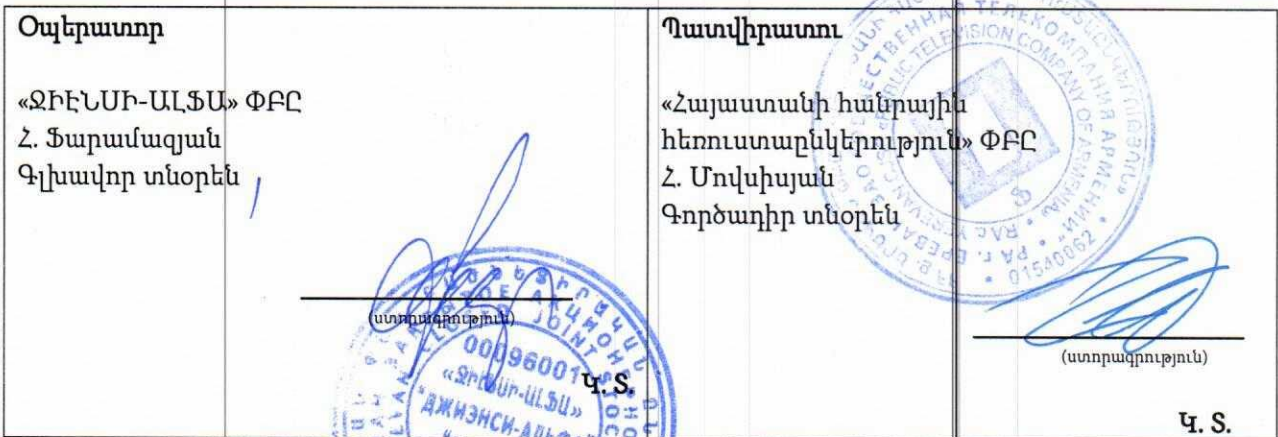 Օպերատոր
«ՋԻԷՆՍԻ-ԱԼՖԱ» ՓԲԸ
Հ. Ֆարամազյան
Գլխավոր տնօրեն
(ստորագրություն)
00096001
«ՋԻԷՆՍԻ-ԱԼՖԱ»
"ДЖИЭНСИ-АЛЬФА"
Կ. Տ.
Պատվիրատու
«Հայաստանի հանրային
հեռուստաընկերություն» ՓԲԸ
Հ. Մովսիսյան
Գործադիր տնօրեն
PUBLIC TELEVISION COMPANY OF ARMENIA
01540062
(ստորագրություն)
Կ. Տ.